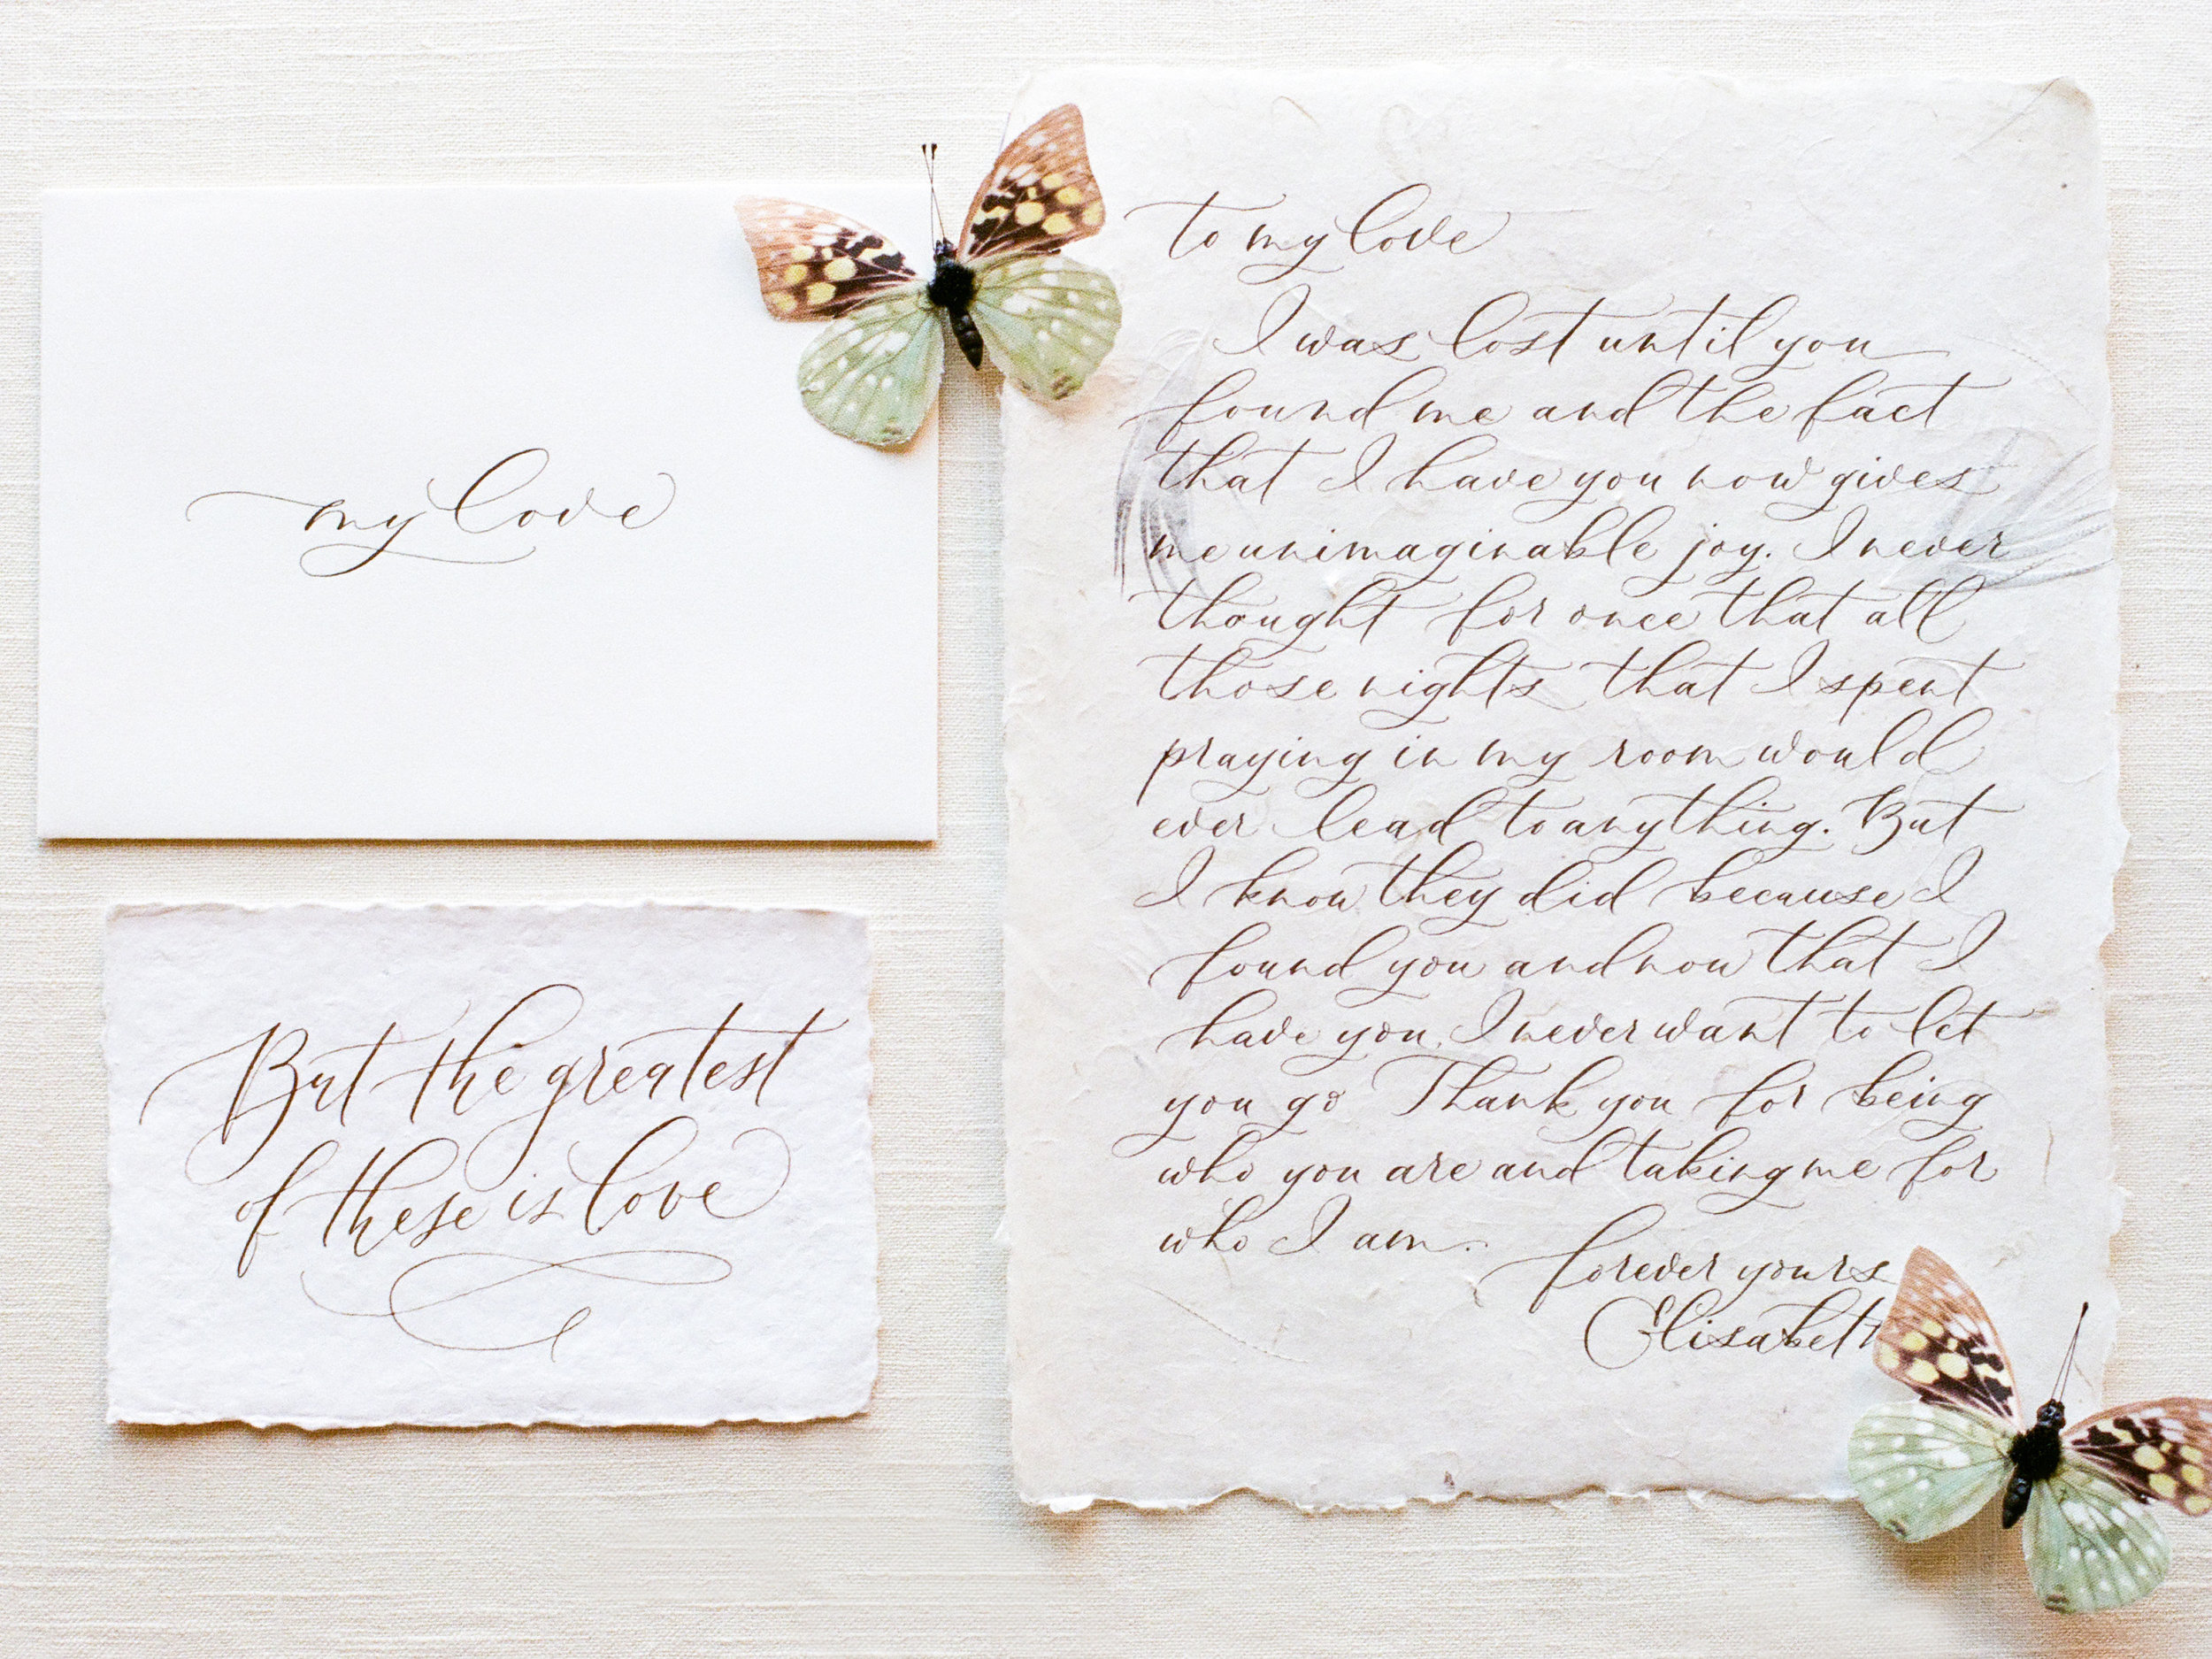 my love
But the greatest
of these is love
to my love
I was lost until you
found me and the fact
that I have you now gives
me unimaginable joy. I never
thought for once that all
those nights that I spent
praying in my room would
ever lead to anything. But
I know they did because I
found you and now that I
have you, I never want to let
you go Thank you for being
who you are and taking me for
who I am.
forever yours
Elisabeth